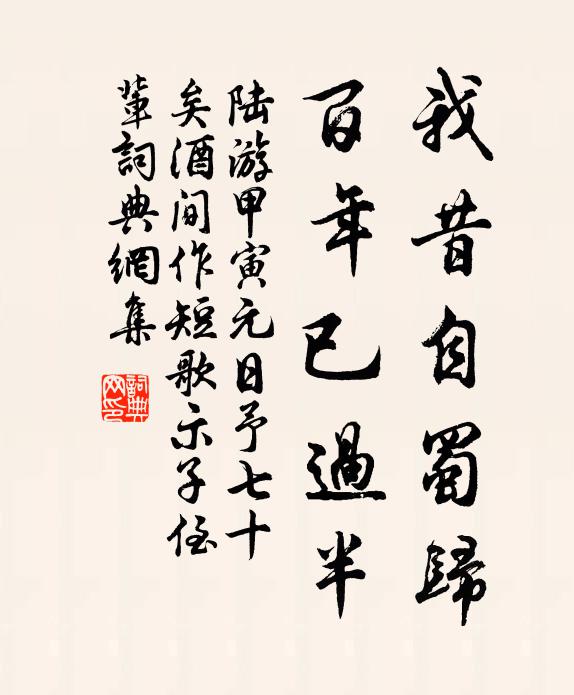 我昔自蜀歸
百年已過半
陆游甲寅元日予七十
矣酒间作短歌示子侄
輩詞典網集
詞典
网印